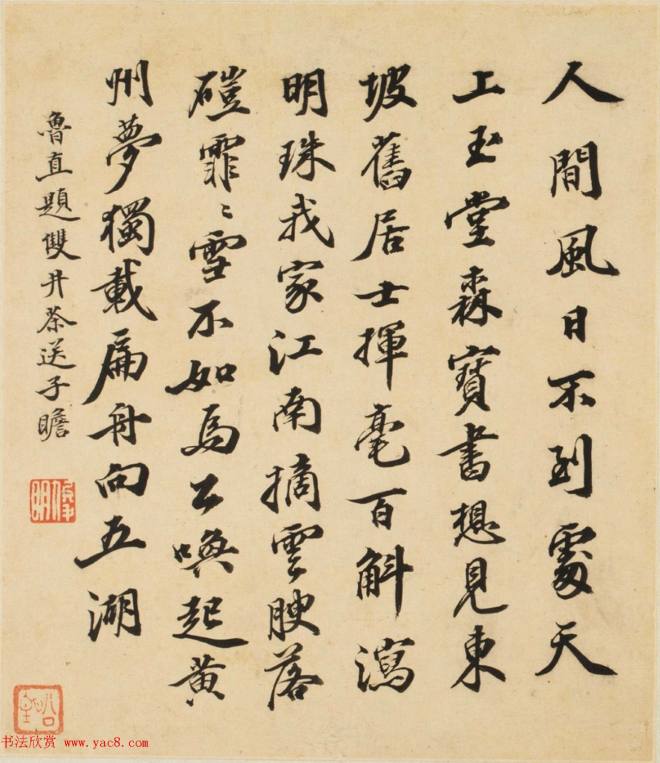 人間風日不到處天
上玉堂森寶書想見東
坡舊居士揮毫百斛瀉
明珠我家江南摘雲腴落
磑霏〻雪不如為公喚起黃
州夢獨載扁舟向五湖
魯直題雙井茶送子瞻
俊明
书法欣赏 www.yac8.com